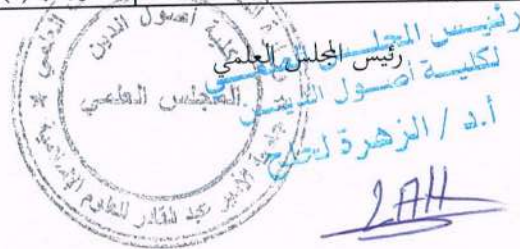 رئيس المجلس العلمي
رئيس المجلس العلمي
لكلية أصول الدين
أ.د / الزهرة لحلح
كلية أصول الدين
المجلس العلمي
جامعة الأمير عبد القادر للعلوم الإسلامية